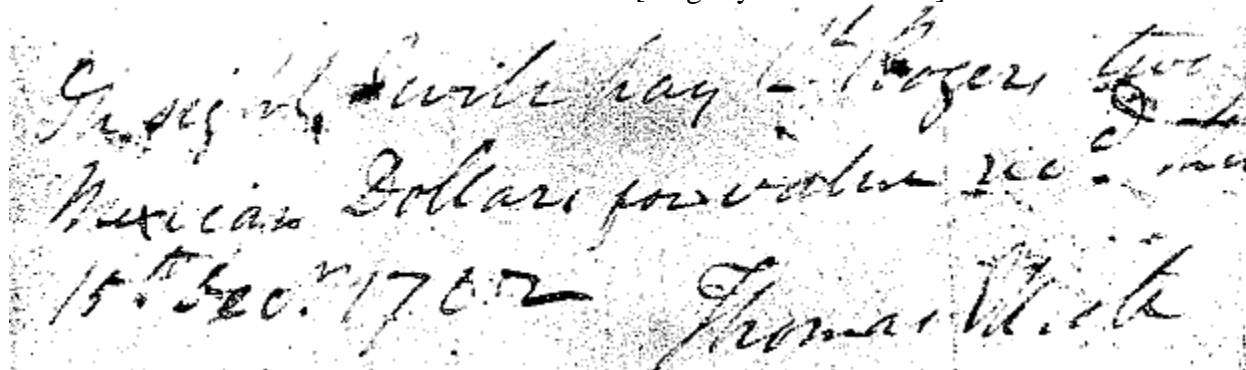 On sight I will pay to Rogers two
Mexican Dollars for value rec^d.
15th Dec.r 17
Thomas White